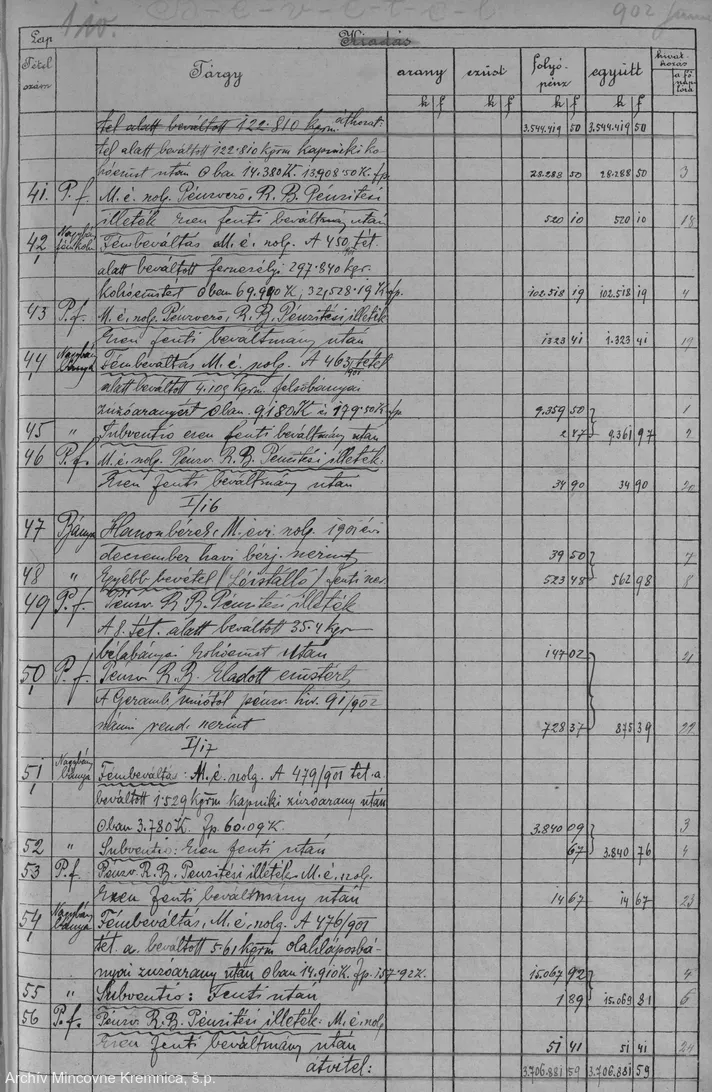 Bevétel 902
Lap Kiadás
Tétel szám Tárgy arany ezüst folyó pénz együtt hivatkozás a főnaplóra
k f k f k f k f
tel alatt beváltott 122·810 kgrm. áthozat: 3.544.419 50 3.544.419 50
tel alatt beváltott 122·810 kgrm kapniki ko-
hóezüst után Oban 14.380K. 13908·50K. fp. 28.288 50 28.288 50 3
41. P.f. M. é. nolg. Pénzverő, R. B. Pénzitési
illeték ezen fenti beváltmány után 520 10 520 10 18
42 Nagybány Fémbeváltás M. é. nolg. A 450 tét.
alatt beváltott fernezelyi 297·840 kgr.
kohóezüstért Oban 69.990K; 32,528·19K fp. 102.518 19 102.518 19 4
43 P.f. M. é. nolg. Pénzverő, R. B. Pénzitési illeték
Ezen fenti beváltmány után 1323 41 1.323 41 19
44 Nagybány Bánya Fémbeváltás M. é. nolg. A 463 tétel
alatt beváltott 4·105 kgrm. felsőbányai
zúzóaranyért Oban. 9180K és 179·50K fp 9.359 50 1
45 " Subventio ezen fenti beváltmány után 2 47 9.361 97 2
46 P.f. M. é. nolg. Pénzv. R. B. Pénzitési illeték:
Ezen fenti beváltmány után 34 90 34 90 20
I/16
47 Bánya Haszonbérek, M. évi nolg. 1901 évi
december havi bérj. szerint 39 50 7
48 " Egyébb bevétel (Lóistálló) fenti sz. 523 48 562 98 8
49 P.f. Pénzv. R. B. Pénzitési illeték
A 8. tét. alatt beváltott 35·4 kgr
bélabányai kohóezüst után 147 02 21
50 P.f. Pénzv. R. B. Eladott ezüstért
A Geramb uniótól pénzv. hiv. 91/902
számú rend. szerint 728 37 875 39 22
I/17
51 Nagybány bánya Fémbeváltás: M. é. nolg. A 479/901 tét. a.
beváltott 1·529 kgrm kapniki zúzóarany után
Oban 3.780K. fp. 60·09K. 3.840 09 3
52 " Subventio: Ezen fenti után 67 3.840 76 4
53 P.f. Pénzv. R. B. Pénzitési illeték M. é. nolg.
Ezen fenti beváltmány után 14 67 14 67 23
54 Nagybány bánya Fémbeváltás, M. é. nolg. A 476/901
tét. a. beváltott 5·61 kgrm oláhláposbá-
nyai zúzóarany után Oban 14.910K. fp. 157·92K. 15.067 92 4
55 " Subventio: Fenti után 1 89 15.069 81 6
56 P.f. Pénzv. R. B. Pénzitési illeték: M. é. nolg
Ezen fenti beváltmány után 51 41 51 41 24
átvitel: 3.706.881 59 3.706.881 59
Archív Mincovne Kremnica, š.p.